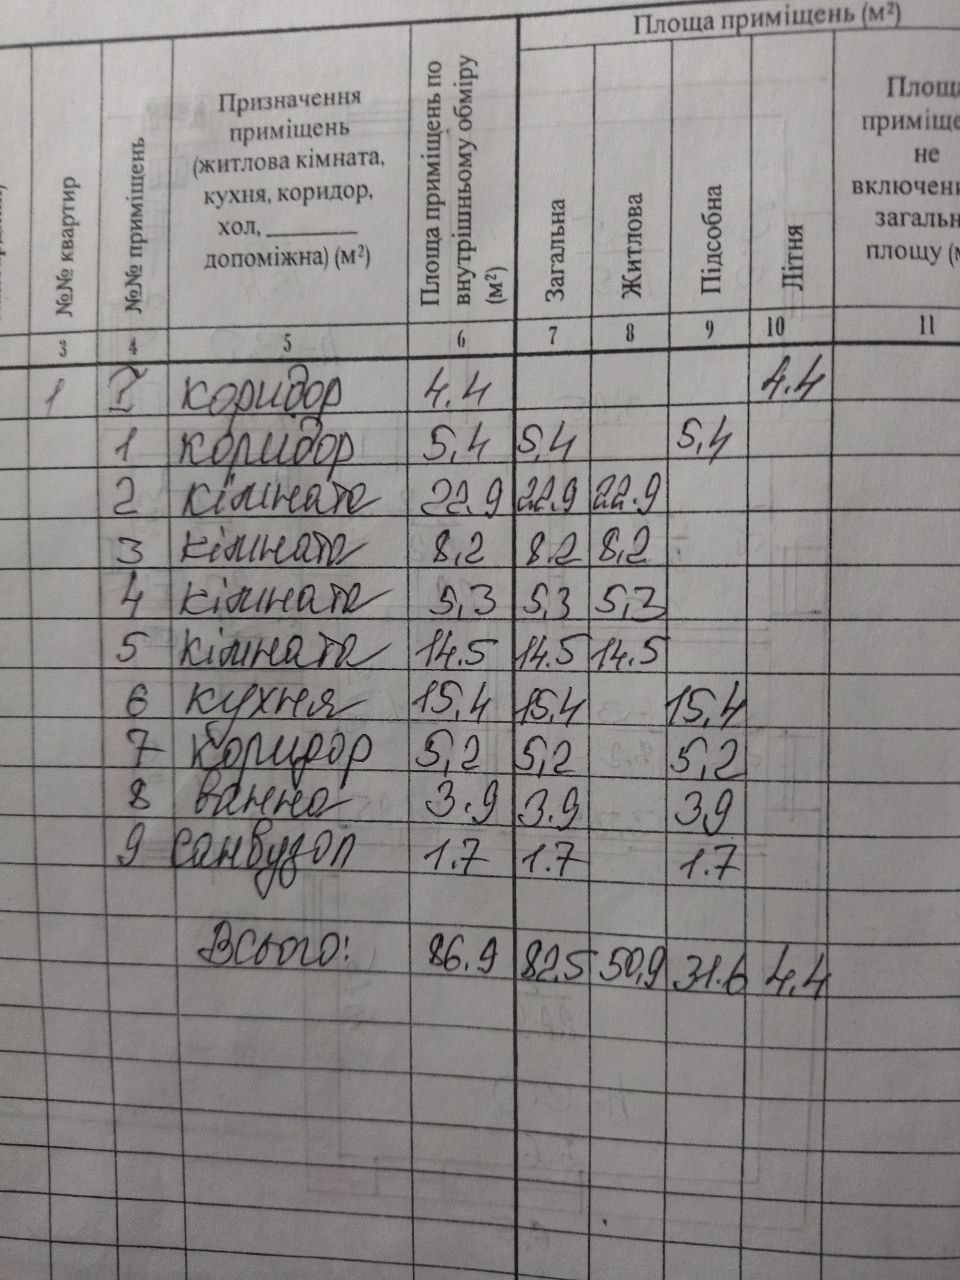 Площа приміщень (м²)
№№ квартир
№№ приміщень
Призначення
приміщень
(житлова кімната,
кухня, коридор,
хол, ________
допоміжна) (м²)
Площа приміщень по
внутрішньому обміру
(м²)
Загальна
Житлова
Підсобна
Літня
Площа
приміще
не
включени
загальн
площу (м
3 4 5 6 7 8 9 10 11
1 I коридор 4.4 4.4
1 коридор 5,4 5,4 5,4
2 кімната 22.9 22.9 22.9
3 кімната 8,2 8.2 8,2
4 кімната 5,3 5,3 5,3
5 кімната 14.5 14.5 14.5
6 кухня 15,4 15,4 15,4
7 коридор 5,2 5,2 5,2
8 ванна 3.9 3.9 3,9
9 санвузол 1.7 1.7 1.7
Всього: 86.9 82,5 50,9 31.6 4.4